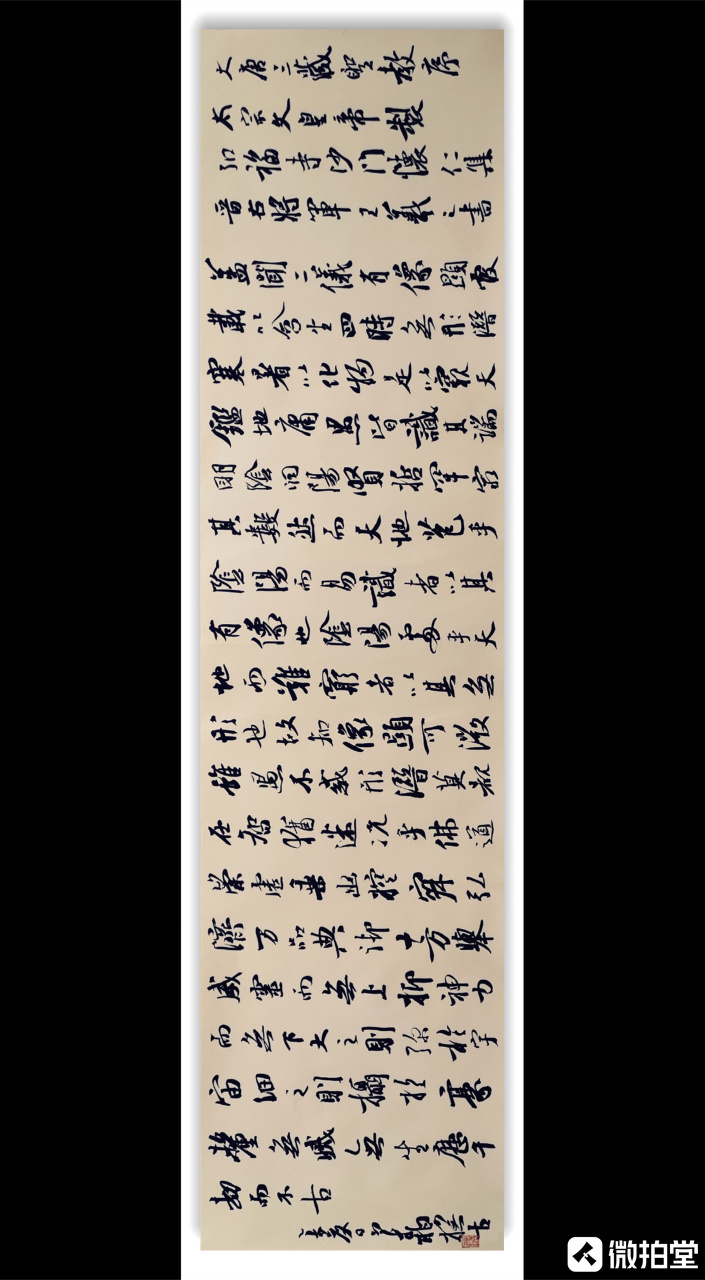 大唐三藏聖教序
太宗文皇帝製
弘福寺沙门懷仁集
晉右將軍王羲之書
蓋聞二儀有像顯覆
載以含生四時無形潛
寒暑以化物是以窺天
鑑地庸愚皆識其端
明陰洞陽賢哲罕窮
其數然而天地苞乎
陰陽而易識者以其
有像也陰陽處乎天
地而難窮者以其無
形也故知像顯可徵
雖愚不惑形潛莫覩
在智猶迷況乎佛道
崇虛乘幽控寂弘
濟万品典御十方舉
威靈而無上抑神力
而無下大之則弥於宇
宙細之則攝於豪
釐無滅無生歷千
劫而不古
微拍堂